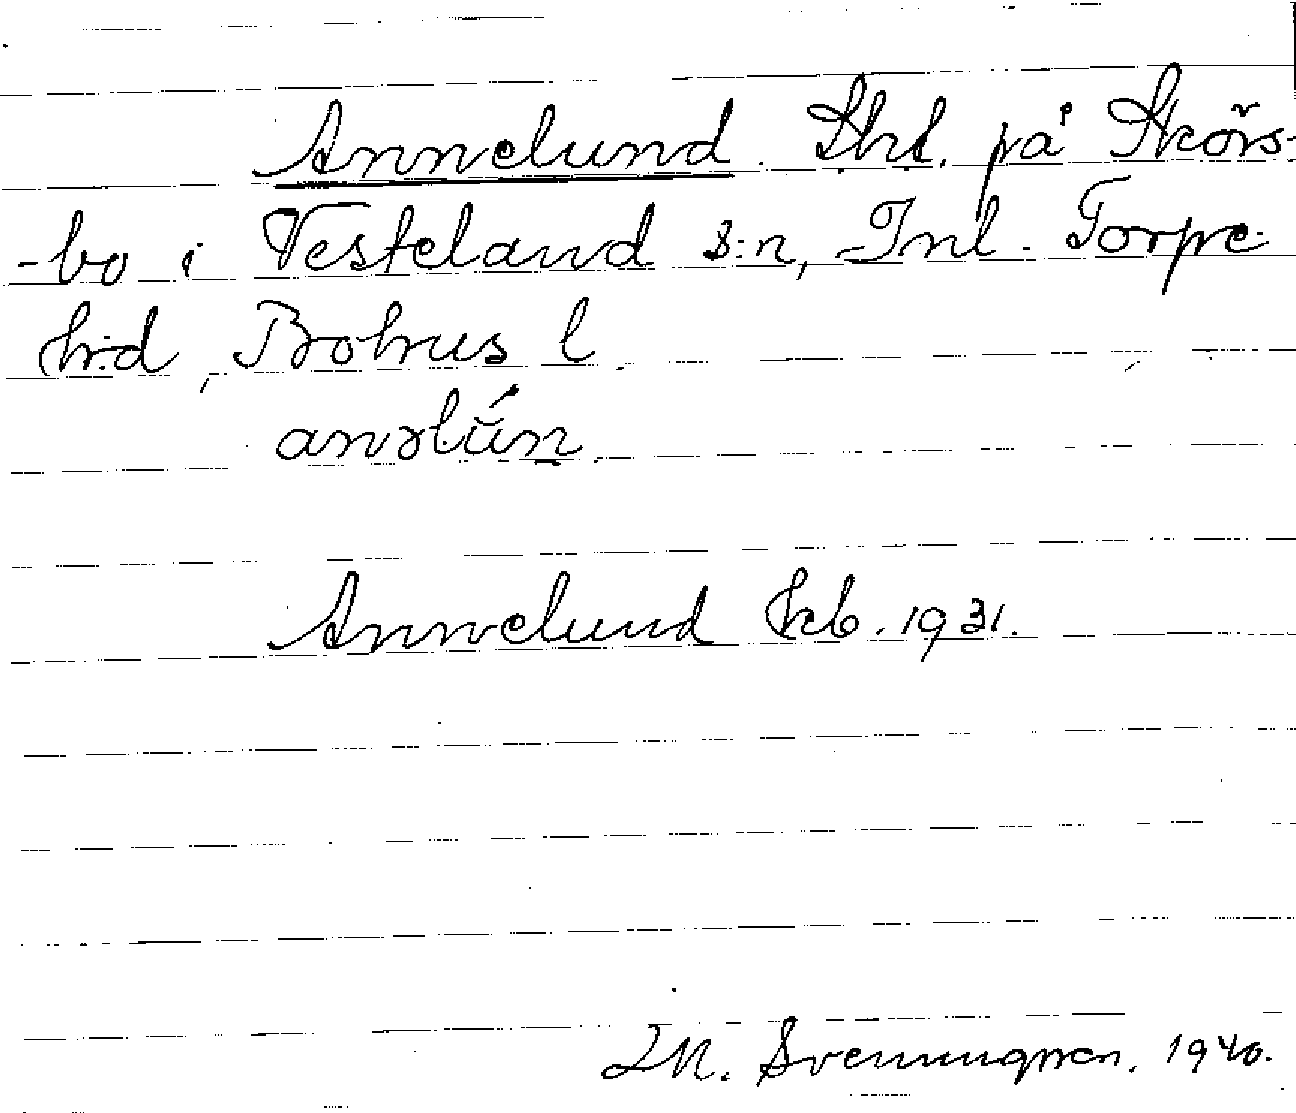 Annelund. Lht. på Skörs-
-bo i Vesteland s:n, Inl. Torpe
h:d, Bohus l.
Annelund Jkb. 1931.
M. Svenningsson, 1940.